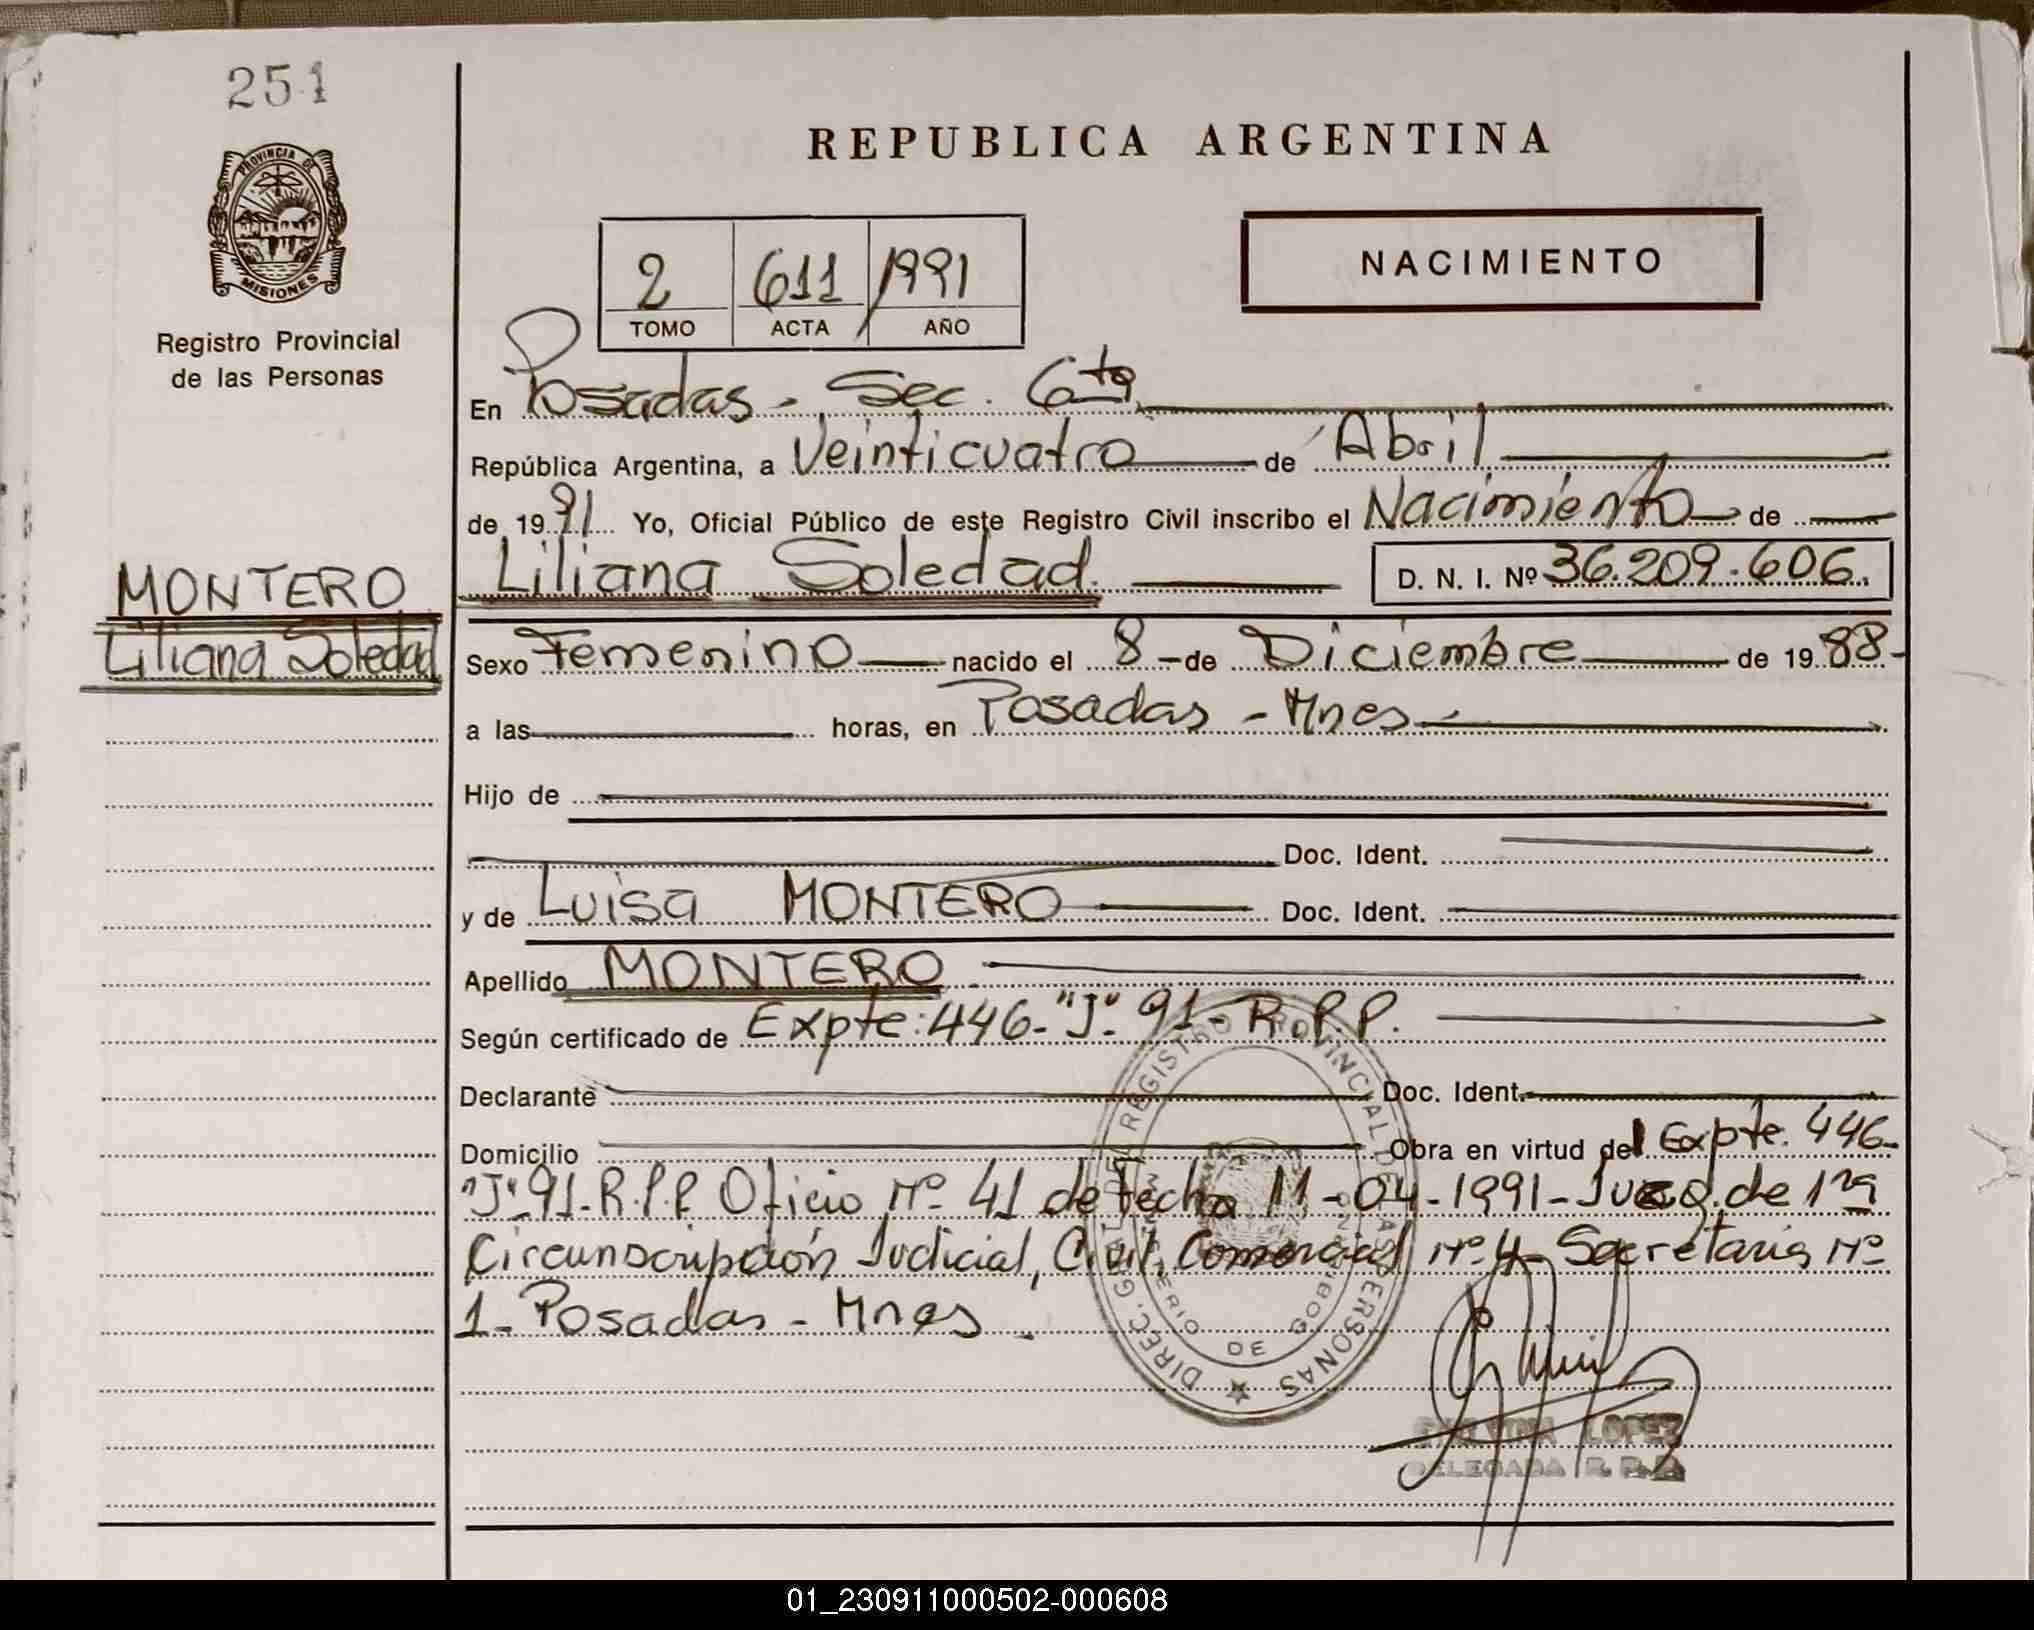 251
PROVINCIA DE
MISIONES
Registro Provincial
de las Personas
MONTERO
Liliana Soledad
REPUBLICA ARGENTINA
2 611 1991
TOMO ACTA AÑO
NACIMIENTO
En Posadas - Sec. 6ta
República Argentina, a Veinticuatro de Abril
de 1991 Yo, Oficial Público de este Registro Civil inscribo el Nacimiento de
Liliana Soledad. D. N. I. Nº 36.209.606.
Sexo Femenino nacido el 8 - de Diciembre de 1988-
a las horas, en Posadas - Mnes -
Hijo de
Doc. Ident.
y de Luisa MONTERO Doc. Ident.
Apellido MONTERO
Según certificado de Expte: 446- "J"- 91- R.P.P.
Declarante Doc. Ident.
Domicilio Obra en virtud del Expte. 446-
"J" 91- R.P.P. Oficio Nº 41 de Fecha 11-04-1991- Juzg. de 1ra
Circunscripción Judicial, Civil, Comercial Nº 4- Secretaria Nº
1- Posadas - Mnes -
DIREC. GRAL. DEL REGISTRO PROVINCIAL DE LAS PERSONAS
MINISTERIO DE GOBIERNO
LOPEZ
DELEGADA R. P. P.
01_230911000502-000608